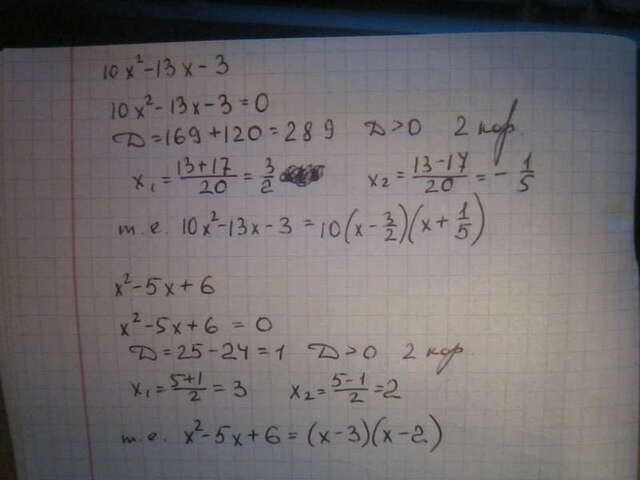 10x²-13x-3
10x²-13x-3=0
D=169+120=289 D>0 2 кор.
x₁=13+17/20=3/2 x₂=13-17/20=-1/5
т.е. 10x²-13x-3=10(x-3/2)(x+1/5)
x²-5x+6
x²-5x+6=0
D=25-24=1 D>0 2 кор.
x₁=5+1/2=3 x₂=5-1/2=2
т.е. x²-5x+6=(x-3)(x-2)